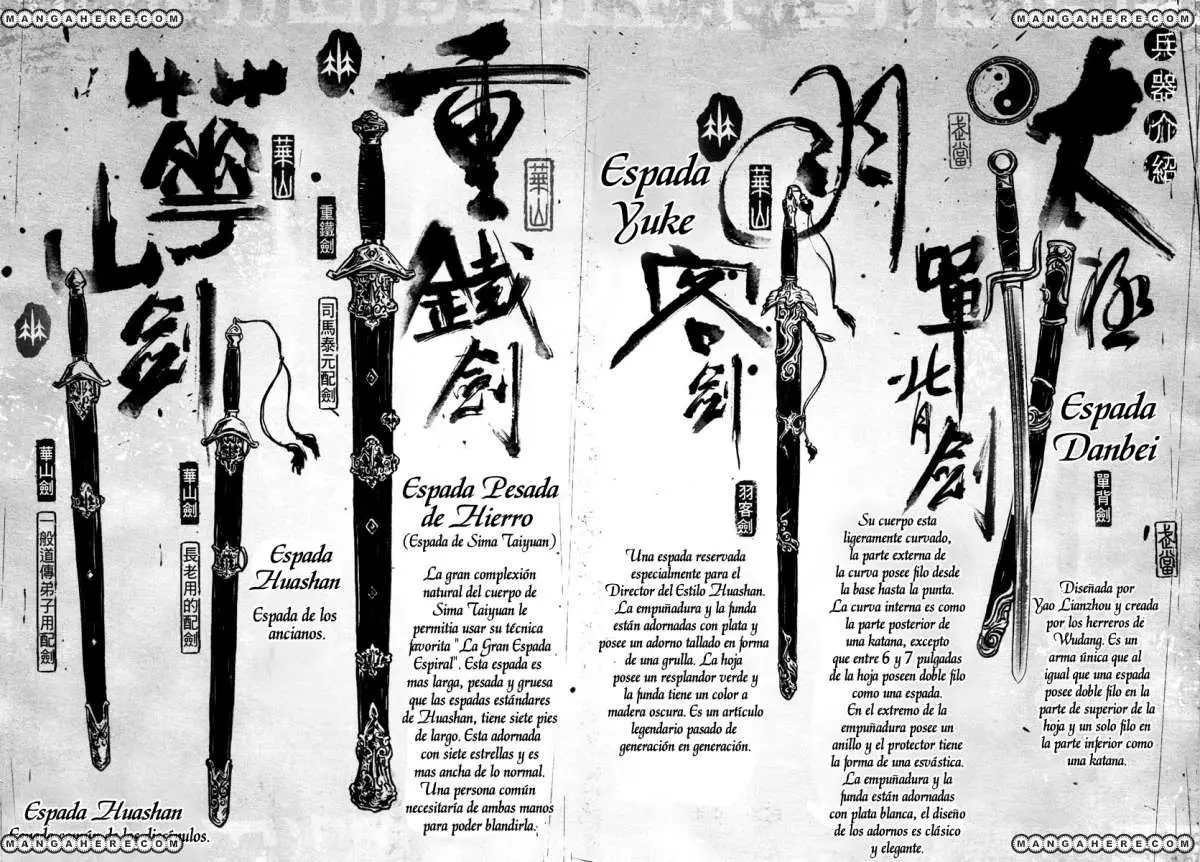 MANGAHERE.COM
MANGAHERE.COM
兵器介紹
太極
武當
單背劍
Espada
Danbei
單背劍
武當
Diseñada por
Yao Lianzhou y creada
por los herreros de
Wudang. Es un
arma única que al
igual que una espada
posee doble filo en la
parte de superior de la
hoja y un solo filo en
la parte inferior como
una katana.
Su cuerpo esta
ligeramente curvado,
la parte externa de
la curva posee filo desde
la base hasta la punta.
La curva interna es como
la parte posterior de
una katana, excepto
que entre 6 y 7 pulgadas
de la hoja poseen doble filo
como una espada.
En el extremo de la
empuñadura posee un
anillo y el protector tiene
la forma de una esvástica.
La empuñadura y la
funda están adornadas
con plata blanca, el diseño
de los adornos es clásico
y elegante.
華山
Espada
Yuke
客劍
羽客劍
Una espada reservada
especialmente para el
Director del Estilo Huashan.
La empuñadura y la funda
están adornadas con plata y
posee un adorno tallado en forma
de una grulla. La hoja
posee un resplandor verde y
la funda tiene un color a
madera oscura. Es un artículo
legendario pasado de
generación en generación.
重鐵劍
華山
重鐵劍
司馬泰元配劍
Espada Pesada
de Hierro
(Espada de Sima Taiyuan)
La gran complexión
natural del cuerpo de
Sima Taiyuan le
permitia usar su técnica
favorita "La Gran Espada
Espiral". Esta espada es
mas larga, pesada y gruesa
que las espadas estándares
de Huashan, tiene siete pies
de largo. Esta adornada
con siete estrellas y es
mas ancha de lo normal.
Una persona común
necesitaría de ambas manos
para poder blandirla.
華山劍
華山
華山劍
長老用的配劍
Espada
Huashan
Espada de los
ancianos.
華山劍
一般道傳弟子用配劍
Espada Huashan
MANGAHERE.COM
MANGAHERE.COM